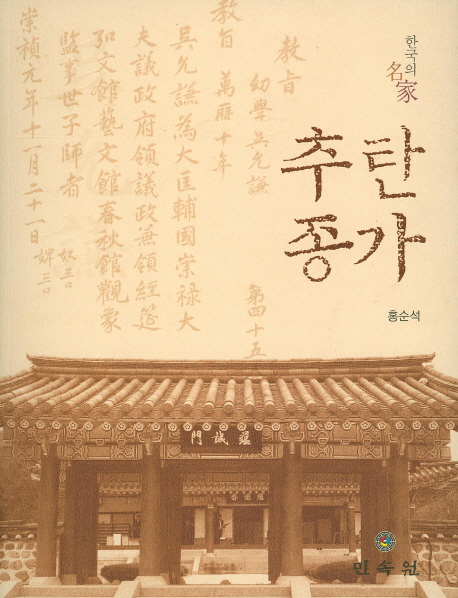 한국의
名家
추탄
종가
홍순석
教旨
幼學吳允謙
第四十五
教旨
萬曆十年
吳允謙為大匡輔國崇祿大
夫議政府領議政兼領經筵
弘文館藝文館春秋館觀象
監事世子師者
奴三口
婢三口
崇禎元年十一月二十一日
蘊誠門
민속원